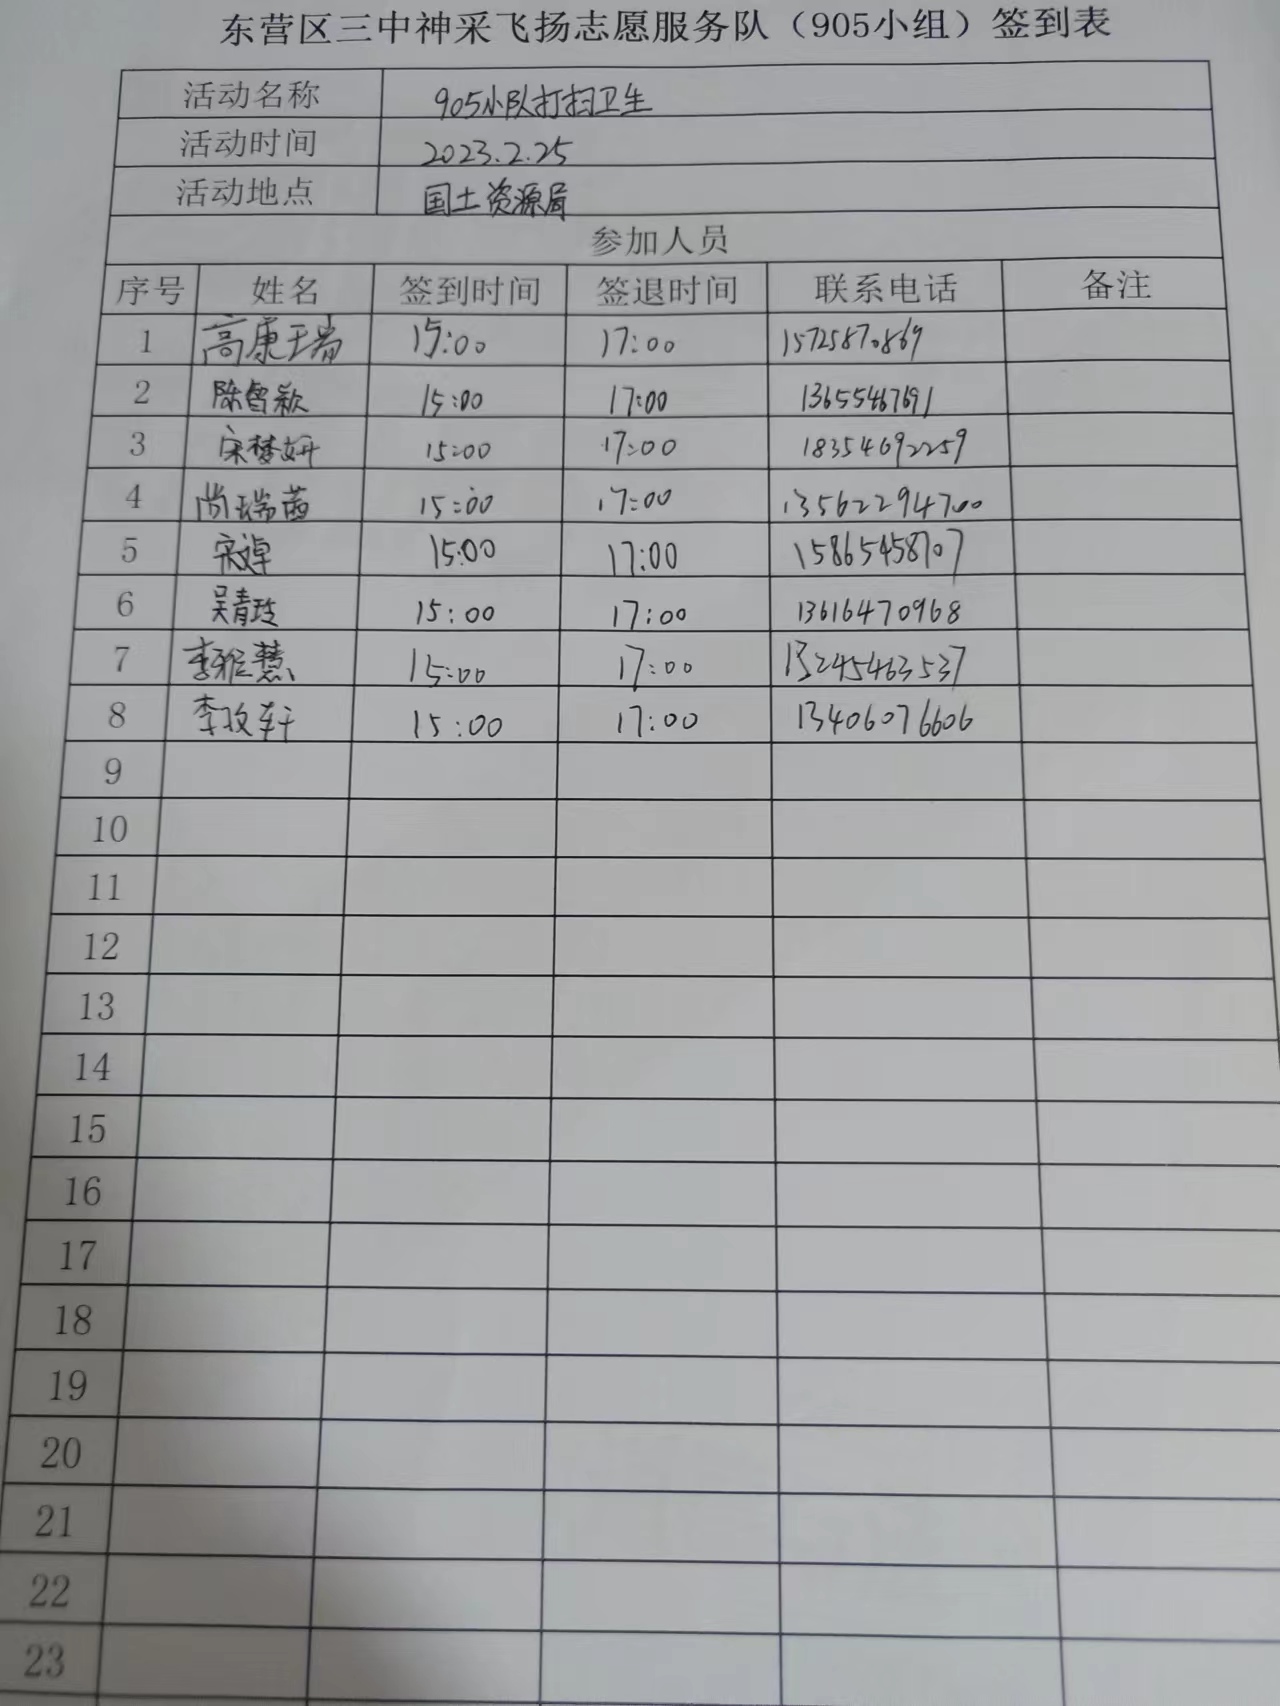 东营区三中神采飞扬志愿服务队（905小组）签到表
活动名称 905小队打扫卫生
活动时间 2023.2.25
活动地点 国土资源局
参加人员
序号 姓名 签到时间 签退时间 联系电话 备注
1 高康瑞 15:00 17:00 15725870869
2 陈智颖 15:00 17:00 13655467691
3 宋梦妍 15:00 17:00 18354692259
4 尚瑞茜 15:00 17:00 13562294700
5 15:00 17:00 15865458707
6 吴青玲 15:00 17:00 13616470968
7 李雅慧 15:00 17:00 13245463537
8 李政轩 15:00 17:00 13406076606
9
10
11
12
13
14
15
16
17
18
19
20
21
22
23